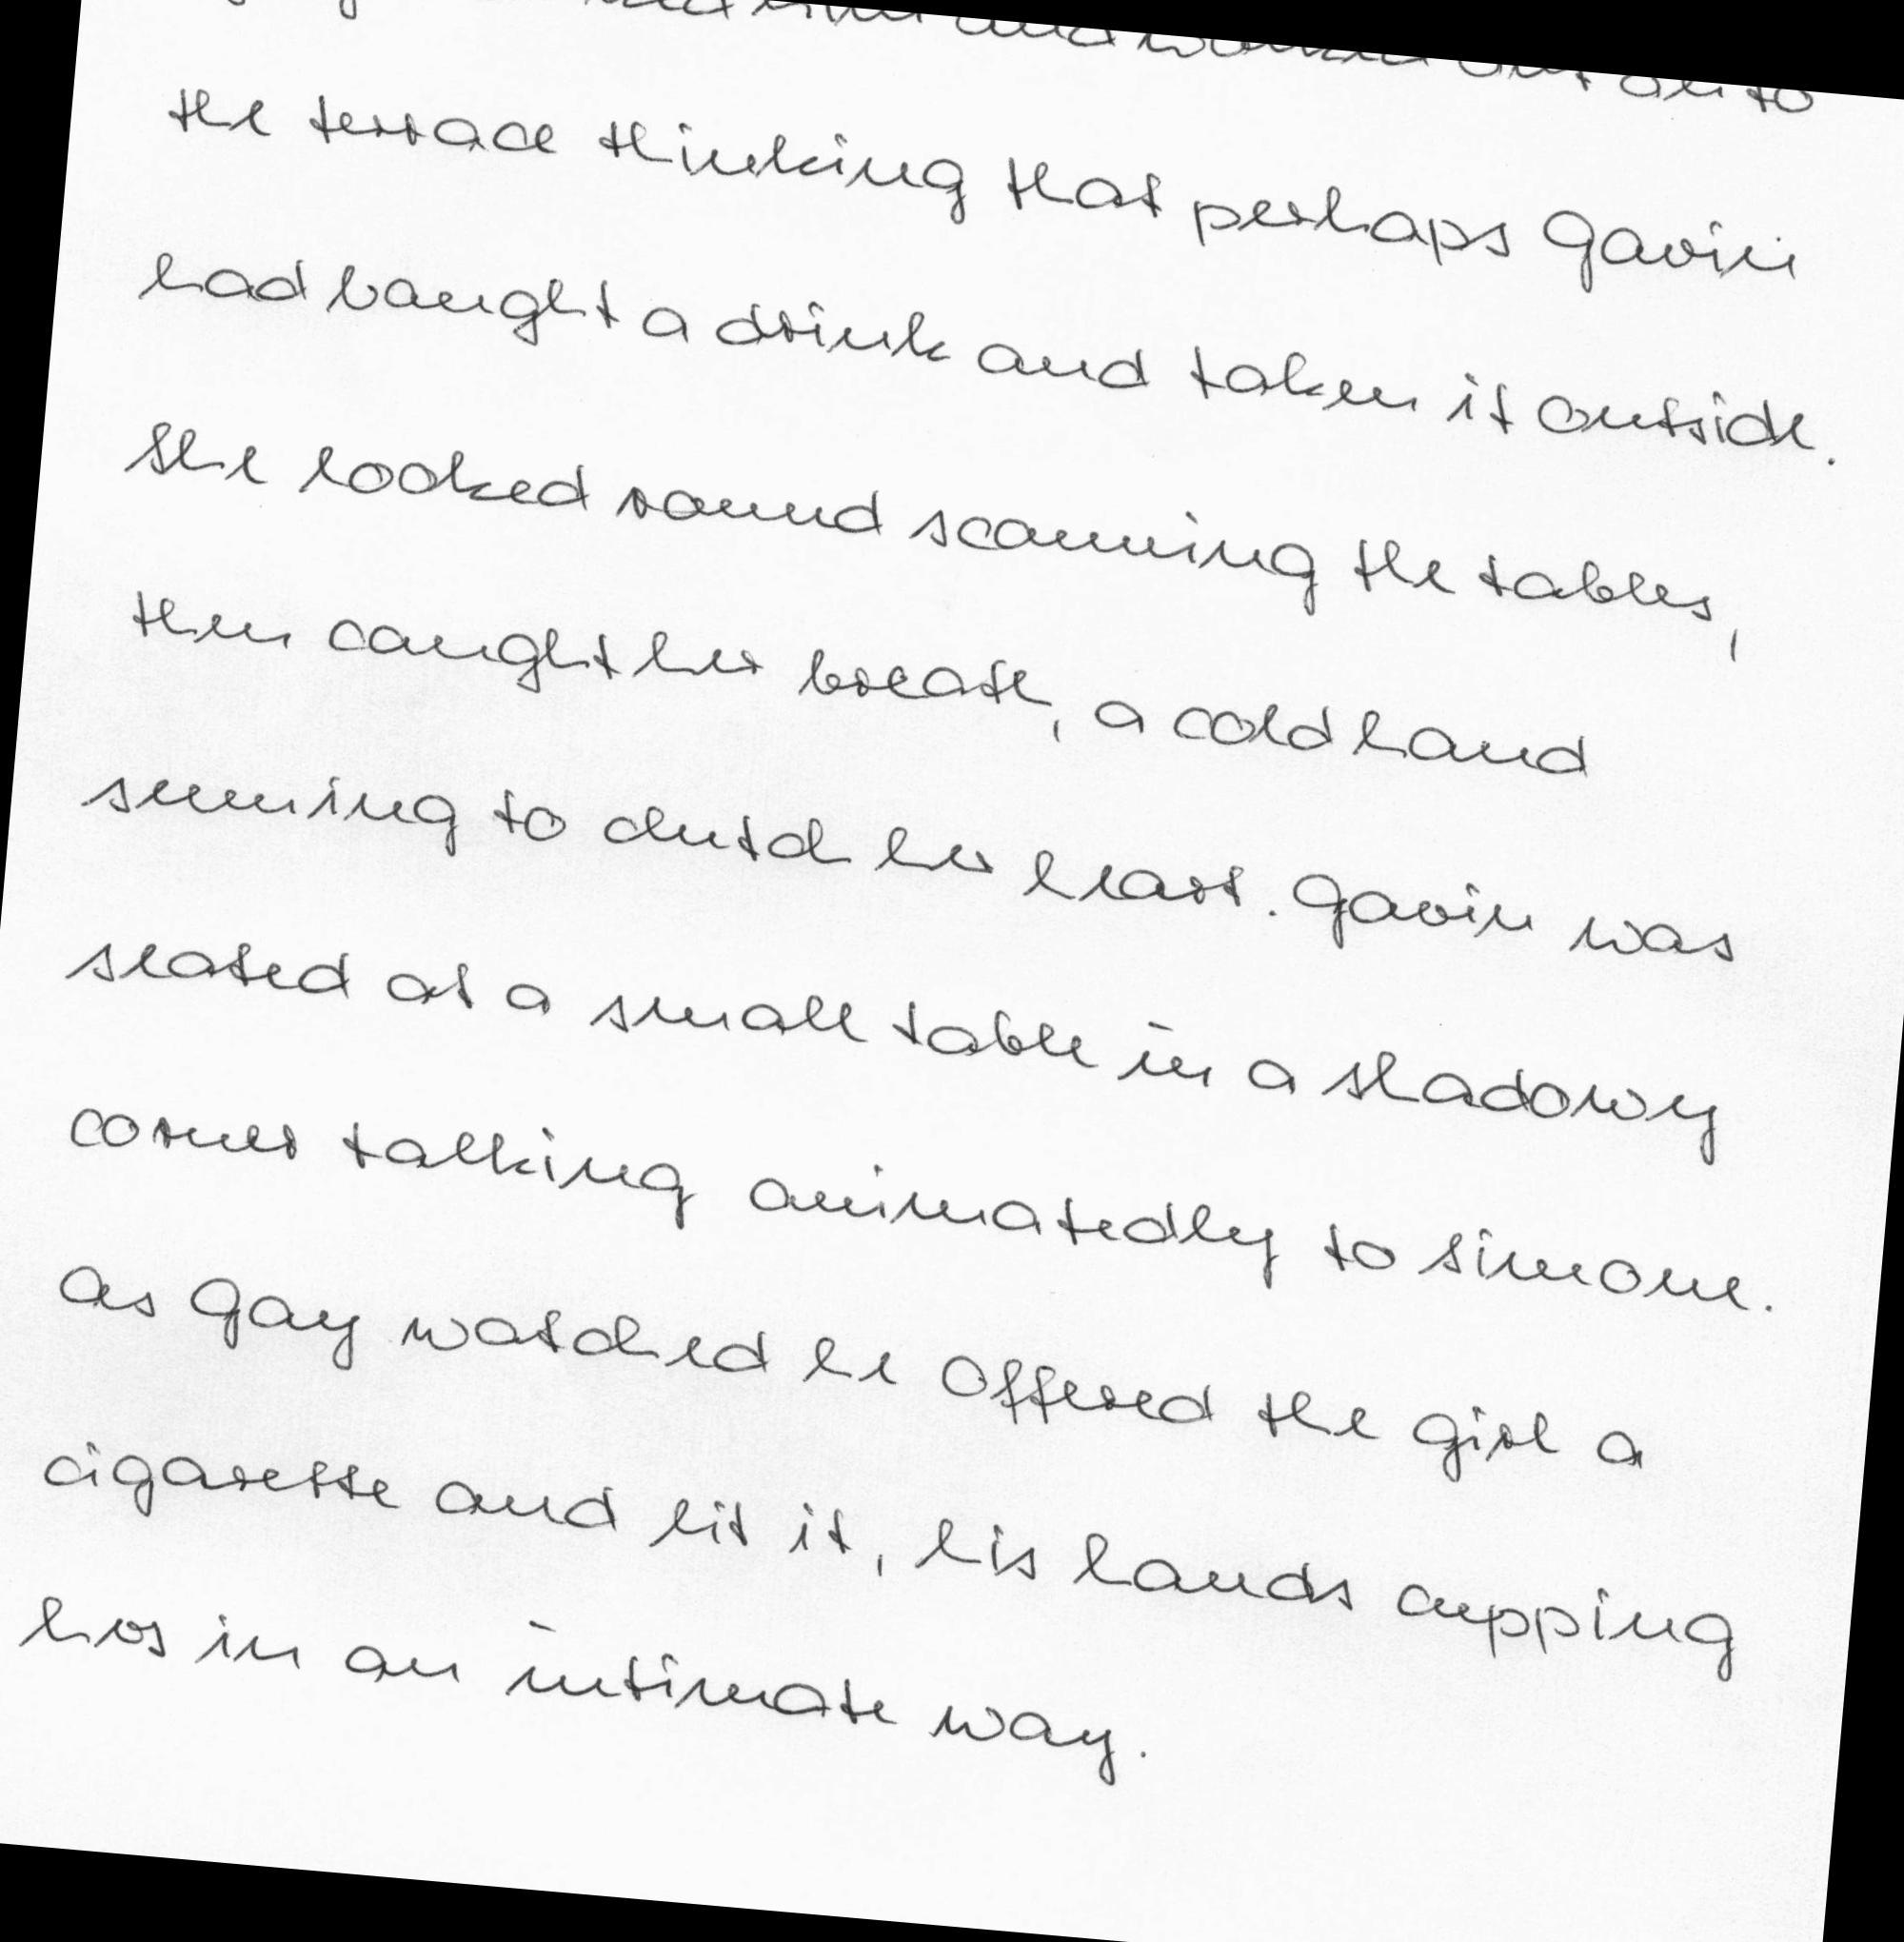 and walked out on to
the terrace thinking that perhaps Gavin
had bought a drink and taken it outside.
She looked round scanning the tables,
then caught her breath, a cold hand
seeming to clutch her heart. Gavin was
seated at a small table in a shadowy
corner talking animatedly to Simone.
As Gay watched he offered the girl a
cigarette and lit it, his hands cupping
hers in an intimate way.